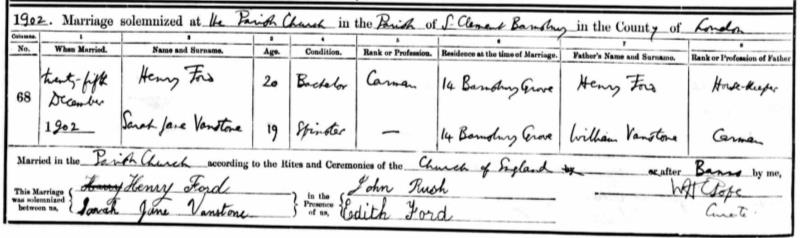 1902. Marriage solemnized at the Parish Church in the Parish of St Clement Barnsbury in the County of London
Columns. 1 2 3 4 5 6 7 8
No. When Married. Name and Surname. Age. Condition. Rank or Profession. Residence at the time of Marriage. Father's Name and Surname. Rank or Profession of Father
68 twenty-fifth December 1902 Henry Ford 20 Bachelor Carman 14 Barnsbury Grove Henry Ford Horse-Keeper
Sarah Jane Vanstone 19 Spinster — 14 Barnsbury Grove William Vanstone Carman
Married in the Parish Church according to the Rites and Ceremonies of the Church of England by or after Banns by me,
This Marriage was solemnized between us, Henry Henry Ford
Sarah Jane Vanstone
in the Presence of us, John Rush
Edith Ford
Pope
Curate